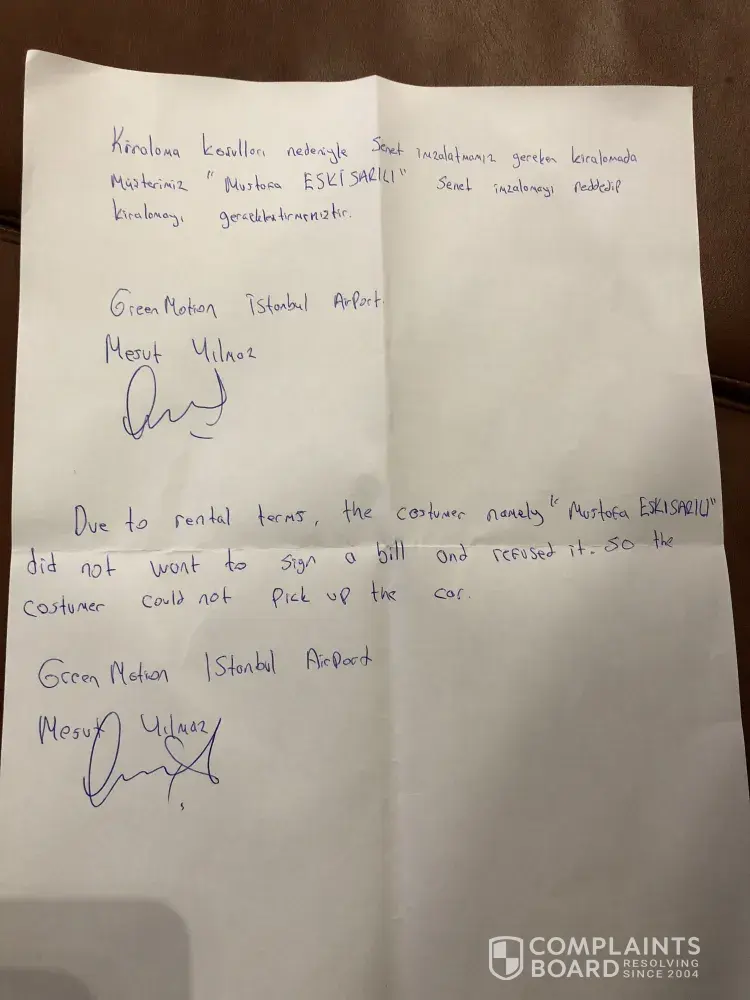 Kiralama kosulları nedeniyle Senet imzalatmamız gereken kiralamada
Müşterimiz " Mustafa ESKİSARILI" Senet imzalamayı reddedip
kiralamayı gerçekleştirmemiştir.
Green Motion İstanbul AirPort
Mesut Yılmaz
Due to rental terms, the costumer namely "Mustafa ESKISARILI"
did not want to sign a bill and refused it. So the
costumer could not pick up the car.
Green Motion IStanbul AirPort
Mesut Yılmaz
COMPLAINTS
BOARD RESOLVING
SINCE 2004